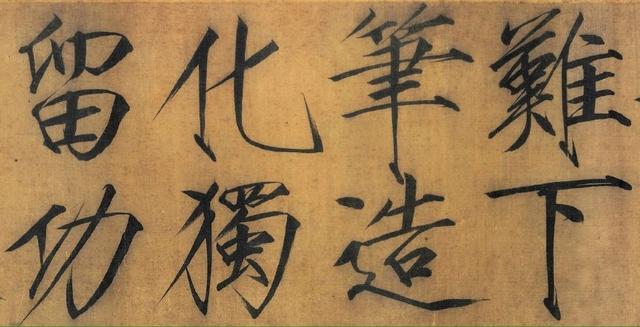 難下
筆造
化獨
留功